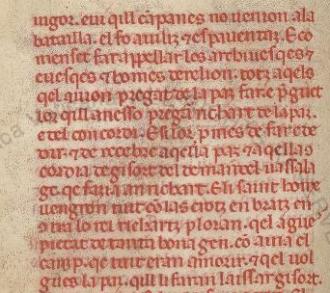 uigor. eui qill cāpanes no uenion. ala
batailla. el fo auiliz ⁊ espauentaz. E co
menset far appellar los arcbiuesqes ⁊
euesqes ⁊ homes de relion. totz aqels
qel auion pregat de la paz far. e p̄guet
los qill anesso pregar nrichart de la paz.
e del concordi. E si lor p̄mes de far e de
dir. ⁊ de recebre aqella paz ⁊ aqella co
cordia de gisort del deman e del uassala
ge. qe faria anrichart. E li saint home
uengron tuit cō las crotz en bratz en
cōtra lo rei richartz ploran. qel agues
pietat de tanta bona gen. cō auia el
camp. qe tuit eran amorir. ⁊ qel uol
gues la paz. qill li faran laissar gisort.